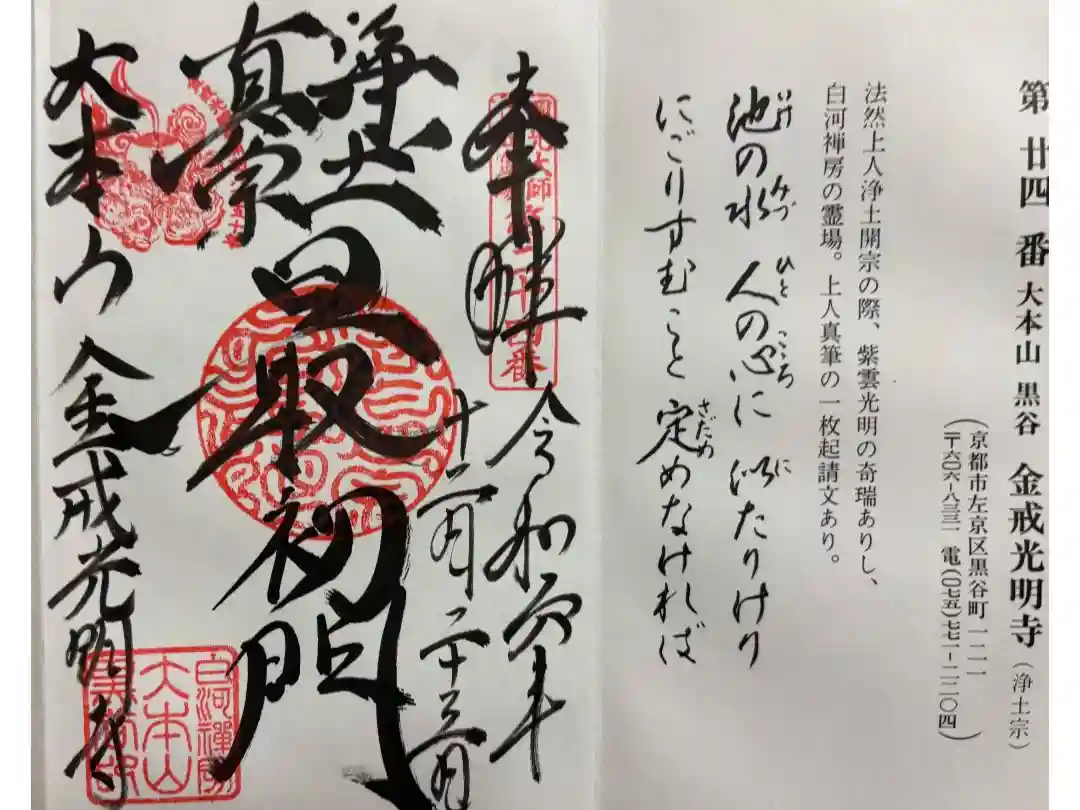 第廿四番 大本山 黒谷 金戒光明寺(浄土宗)
(京都市左京区黒谷町一二一
〒六〇六-八三三一 電(〇七五)七七一-二二〇四)
法然上人浄土開宗の際、紫雲光明の奇瑞ありし、
白河禅房の霊場。上人真筆の一枚起請文あり。
池の水 人の心に 似たりけり
いけ みづ ひと こころ に
にごりすむこと 定めなければ
さだめ
奉拝
令和四年
十二月二十三日
浄土
真宗
最初門
大本山 金戒光明寺
白河禅房
大本山